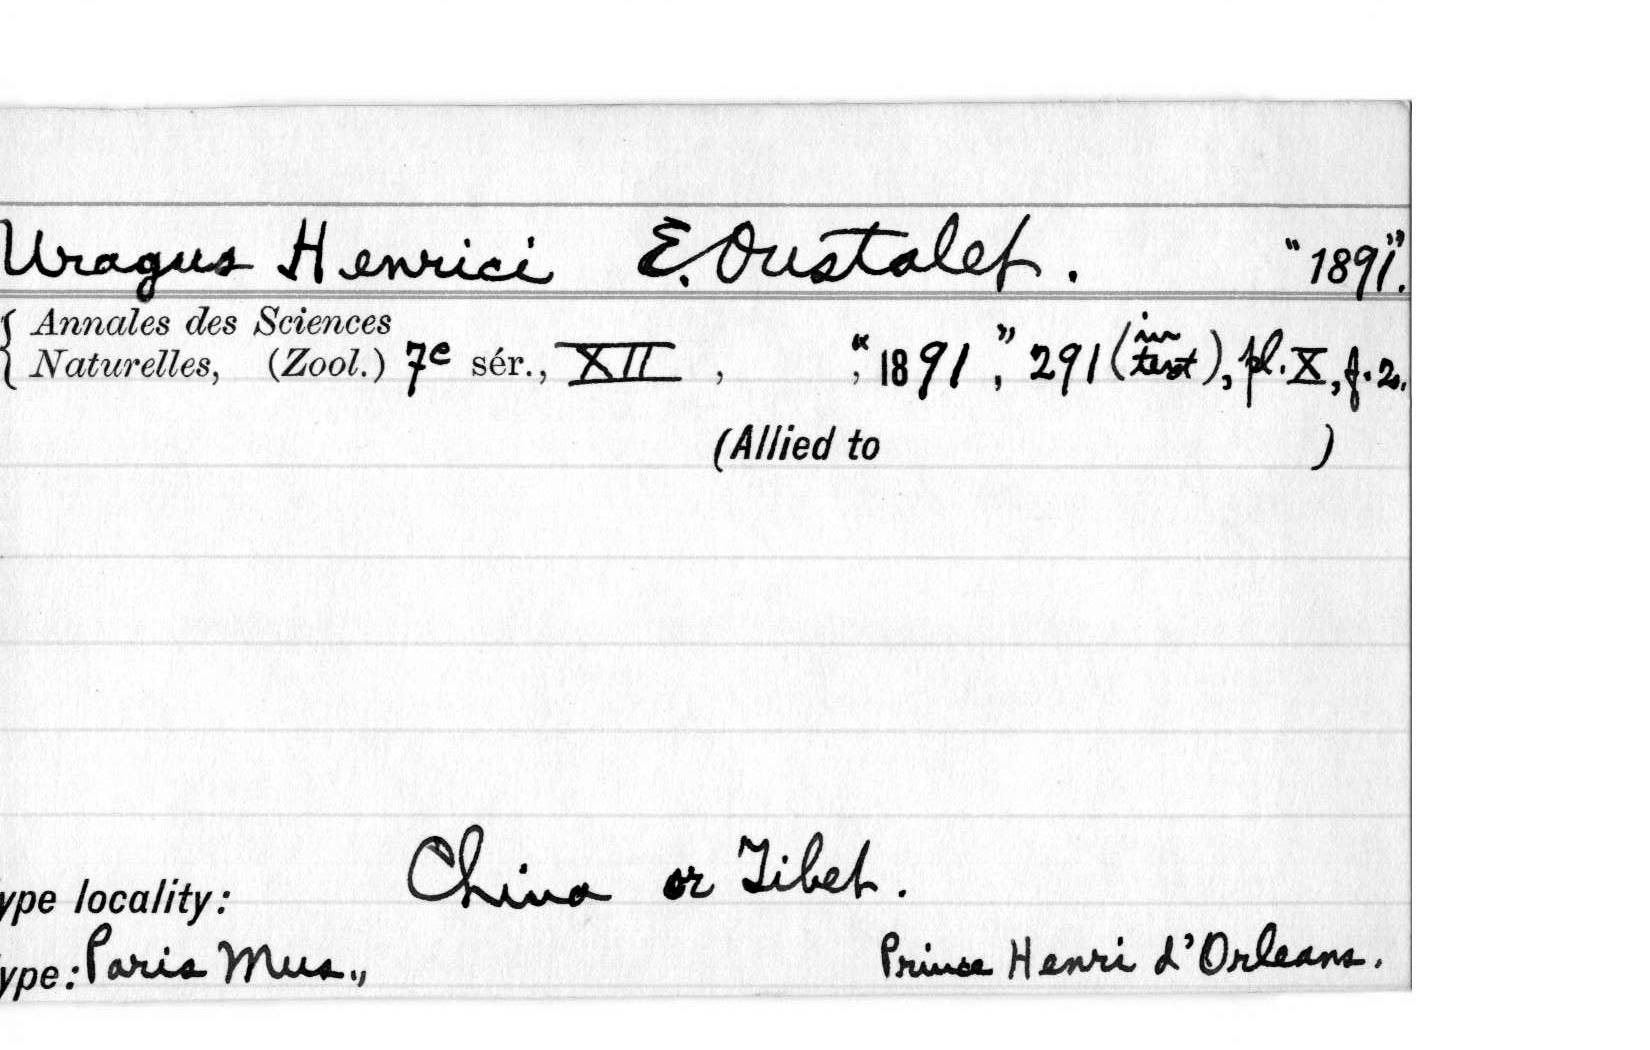 Uragus Henrici E. Oustalet. "1891".
{ Annales des Sciences
Naturelles, (Zool.) 7e sér., XII , ; "1891", 291 (in text), pl. X, f. 2.
(Allied to )
ype locality: China or Tibet.
ype: Paris Mus., Prince Henri d'Orleans.